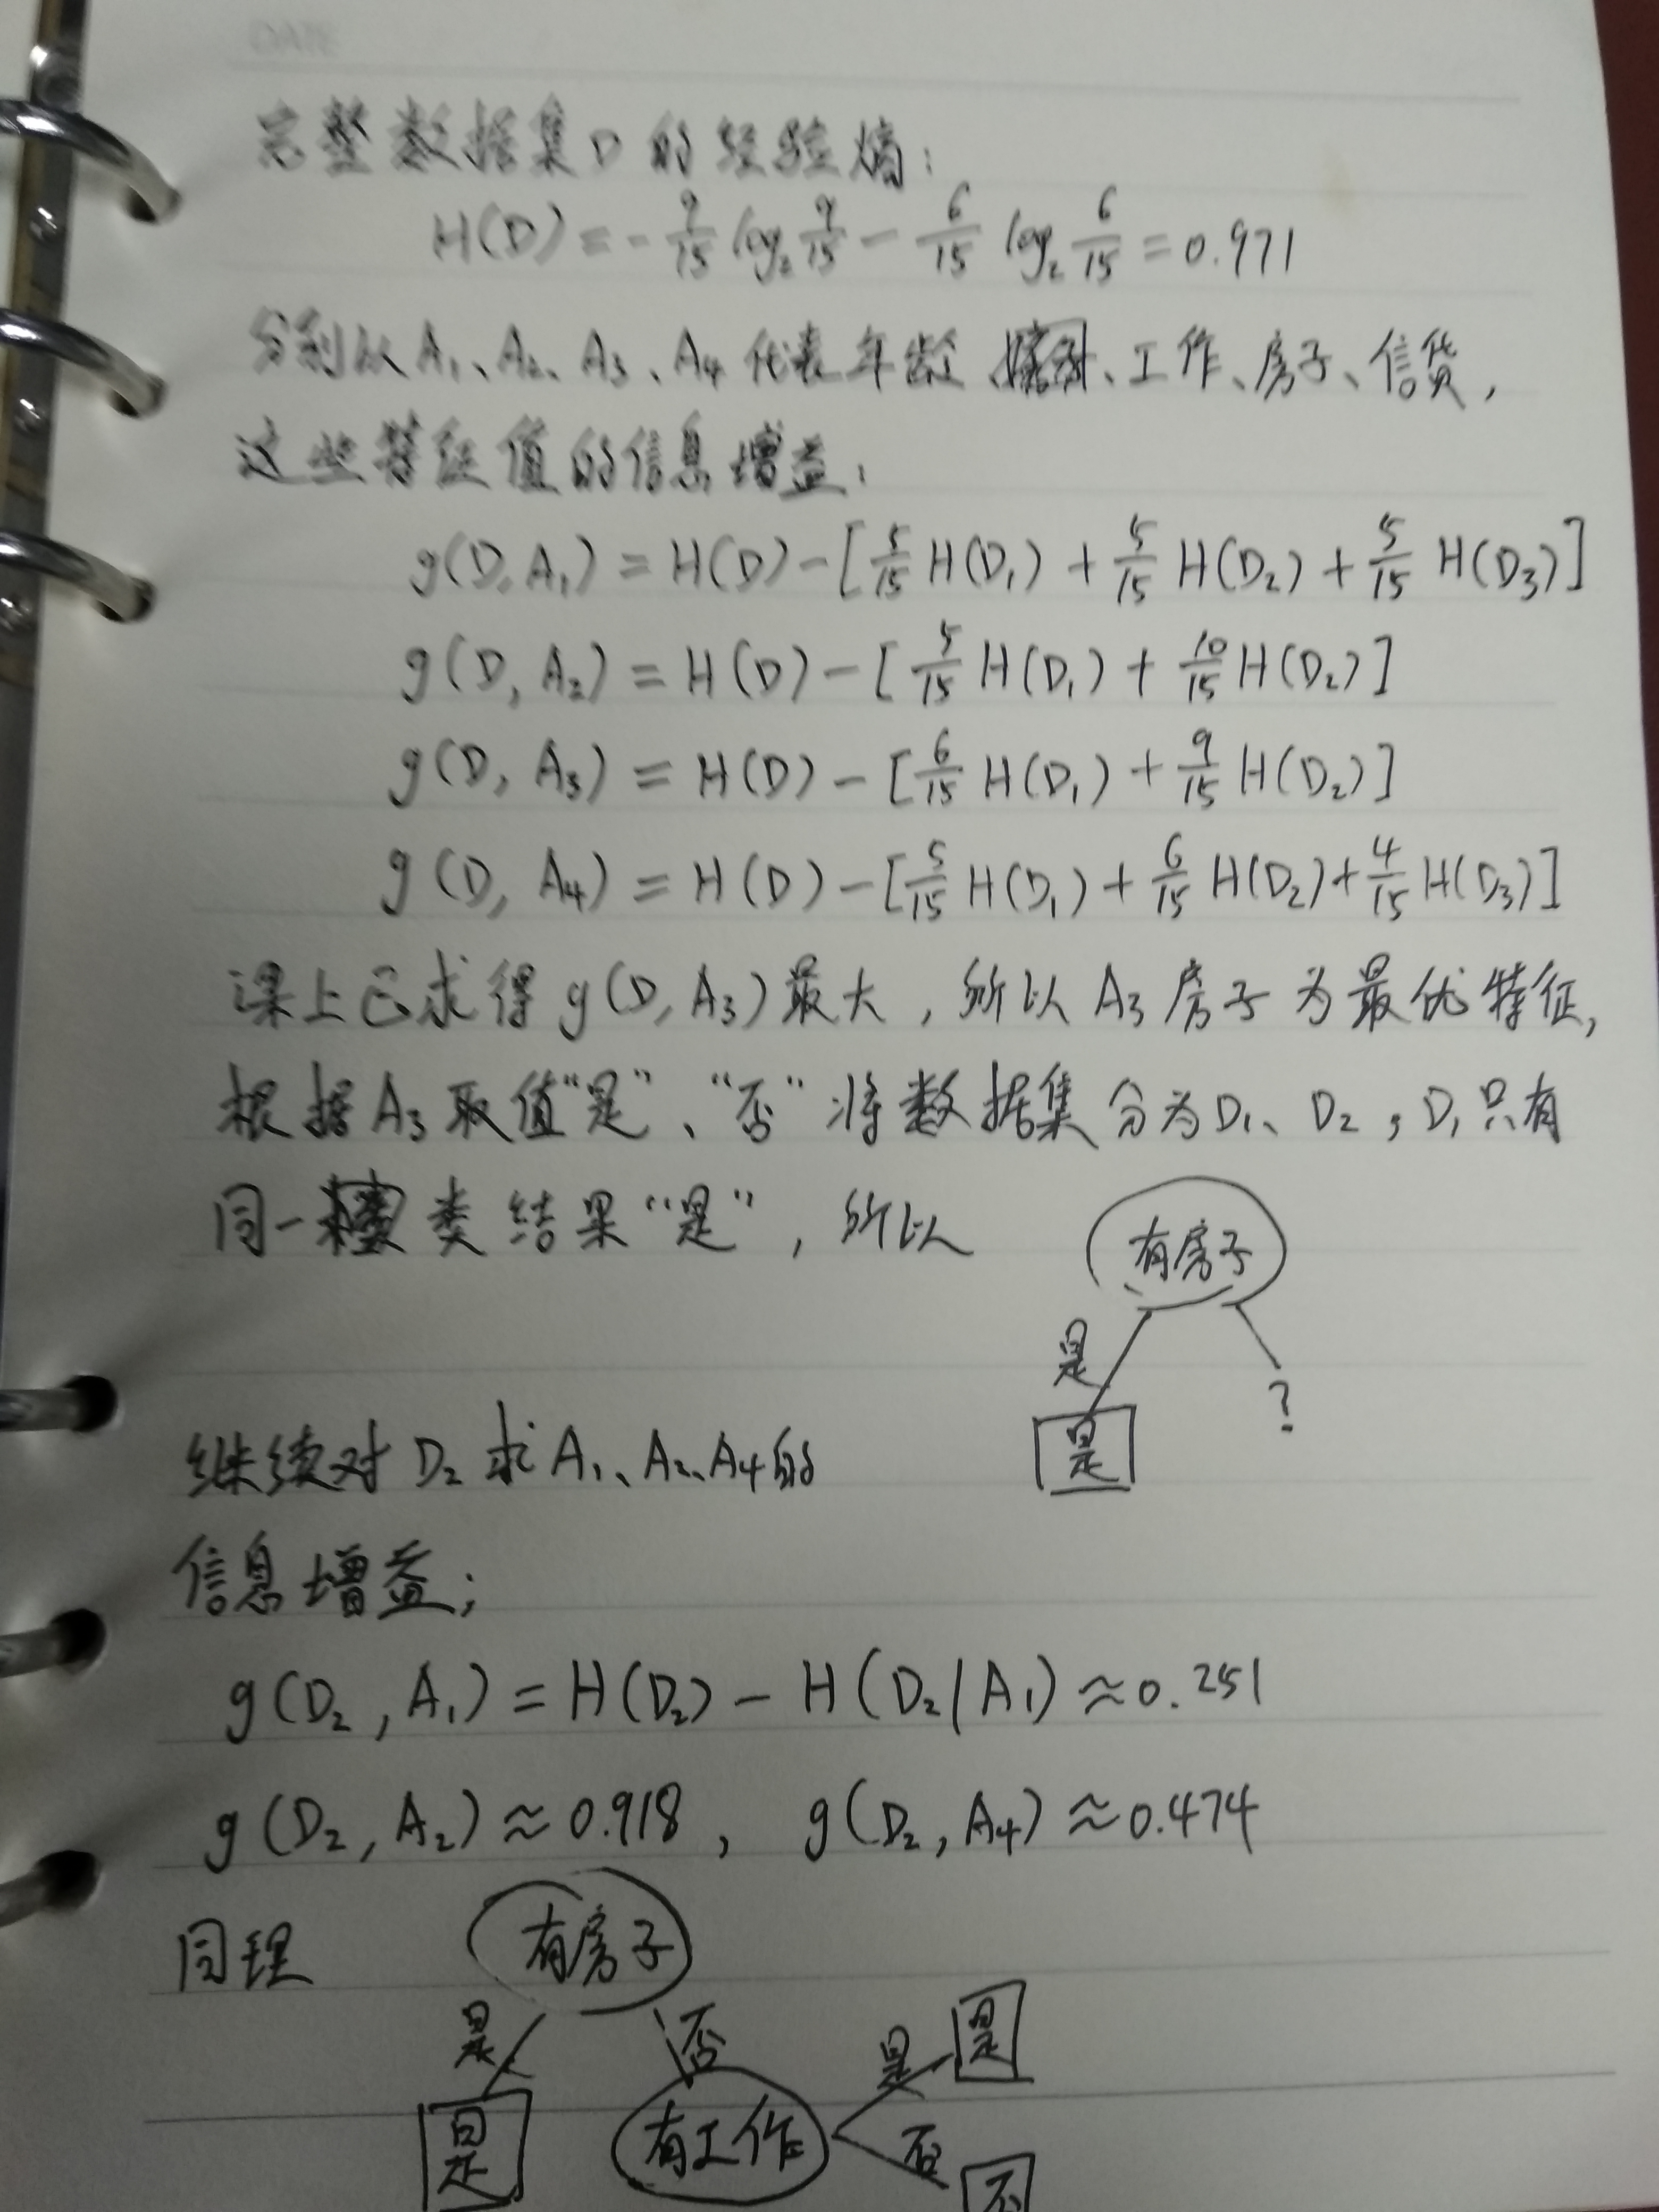 DATE
完整数据集D的经验熵:
H(D) = - 9/15 log₂ 9/15 - 6/15 log₂ 6/15 = 0.971
分别以A₁、A₂、A₃、A₄代表年龄、工作、房子、信贷,
这些特征值的信息增益:
g(D,A₁) = H(D) - [5/15 H(D₁) + 5/15 H(D₂) + 5/15 H(D₃)]
g(D, A₂) = H(D) - [5/15 H(D₁) + 10/15 H(D₂)]
g(D, A₃) = H(D) - [6/15 H(D₁) + 9/15 H(D₂)]
g(D, A₄) = H(D) - [5/15 H(D₁) + 6/15 H(D₂) + 4/15 H(D₃)]
课上已求得g(D,A₃)最大,所以A₃房子为最优特征,
根据A₃取值“是”、“否”将数据集分为D₁、D₂,D₁只有
同一类结果“是”,所以
有房子
是
?
是
继续对D₂求A₁、A₂、A₄的
信息增益;
g(D₂, A₁) = H(D₂) - H(D₂|A₁) ≈ 0.251
g(D₂, A₂) ≈ 0.918, g(D₂, A₄) ≈ 0.474
同理
有房子
是 否
是 是
是 有工作
否
否